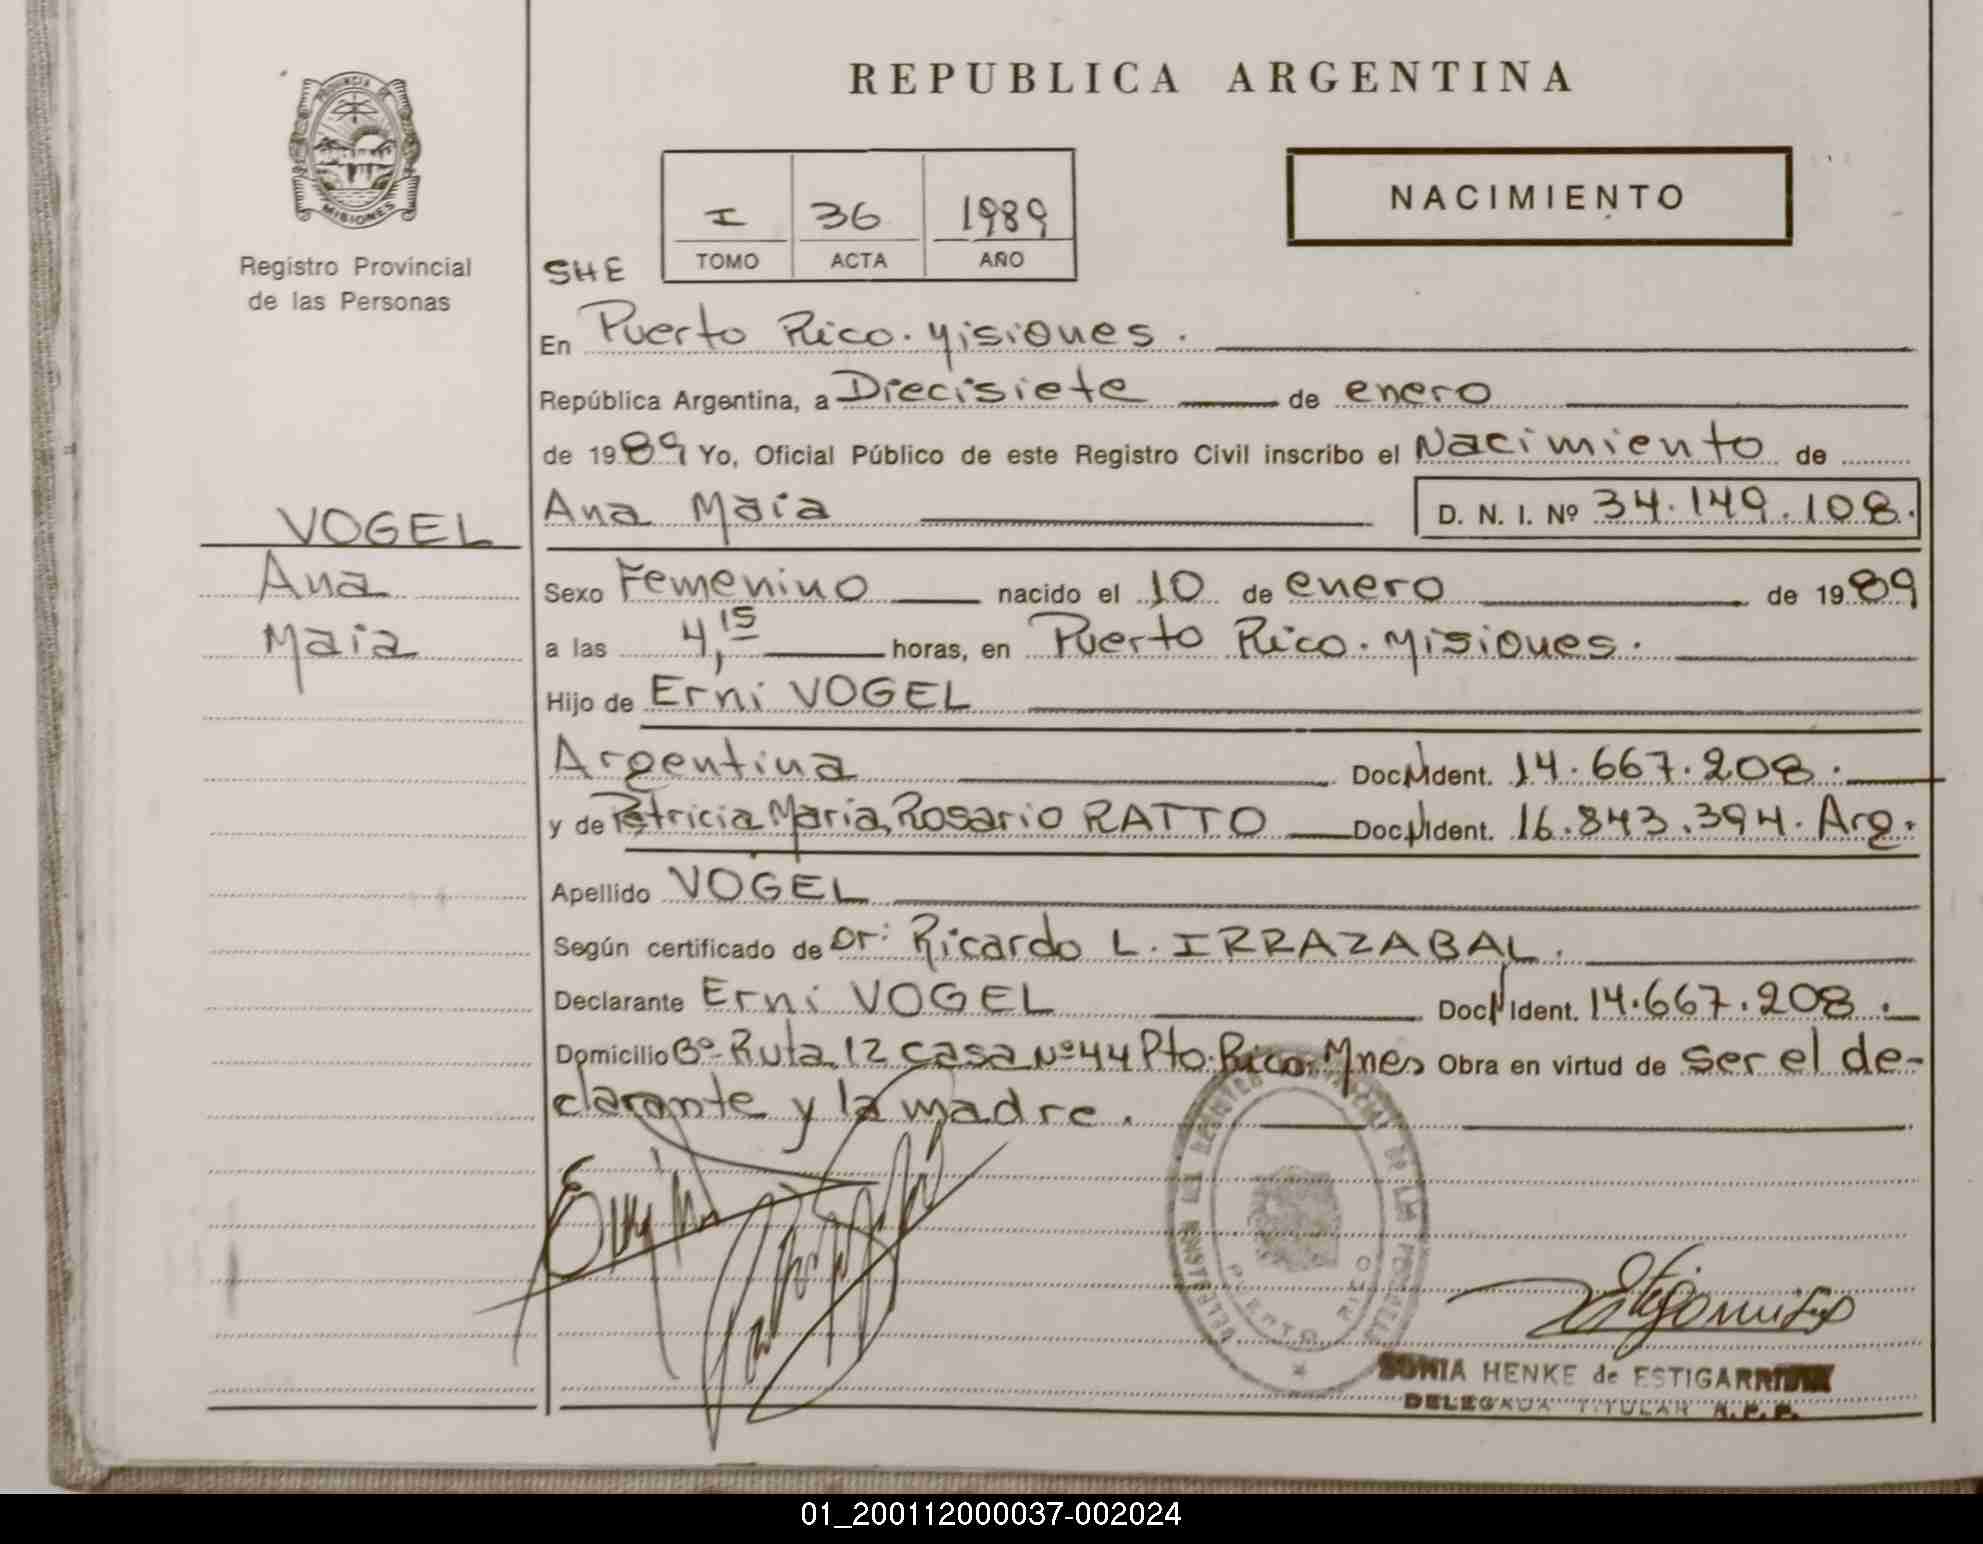 REPUBLICA ARGENTINA
PROVINCIA DE
MISIONES
Registro Provincial
de las Personas
NACIMIENTO
I 36 1989
TOMO ACTA AÑO
SHE
En Puerto Rico. Misiones.
República Argentina, a Diecisiete de enero
de 1989 Yo, Oficial Público de este Registro Civil inscribo el Nacimiento de
Ana Maia D. N. I. Nº 34.149.108.
VOGEL
Ana
Maia
Sexo Femenino nacido el 10 de enero de 1989
a las 4,15 horas, en Puerto Rico. Misiones.
Hijo de Erni VOGEL
Argentina Doc N Ident. 14.667.208.
y de Patricia María Rosario RATTO Doc N Ident. 16.843.394. Arg.
Apellido VOGEL
Según certificado de Dr: Ricardo L. IRRAZABAL.
Declarante Erni VOGEL Doc N Ident. 14.667.208.
Domicilio Bº Ruta 12 casa Nº 44 Pto. Rico. Mnes Obra en virtud de ser el de-
clarante y la madre.
PUERTO RICO
SONIA HENKE de ESTIGARRIBIA
DELEGADA TITULAR R.P.P.
01_200112000037-002024